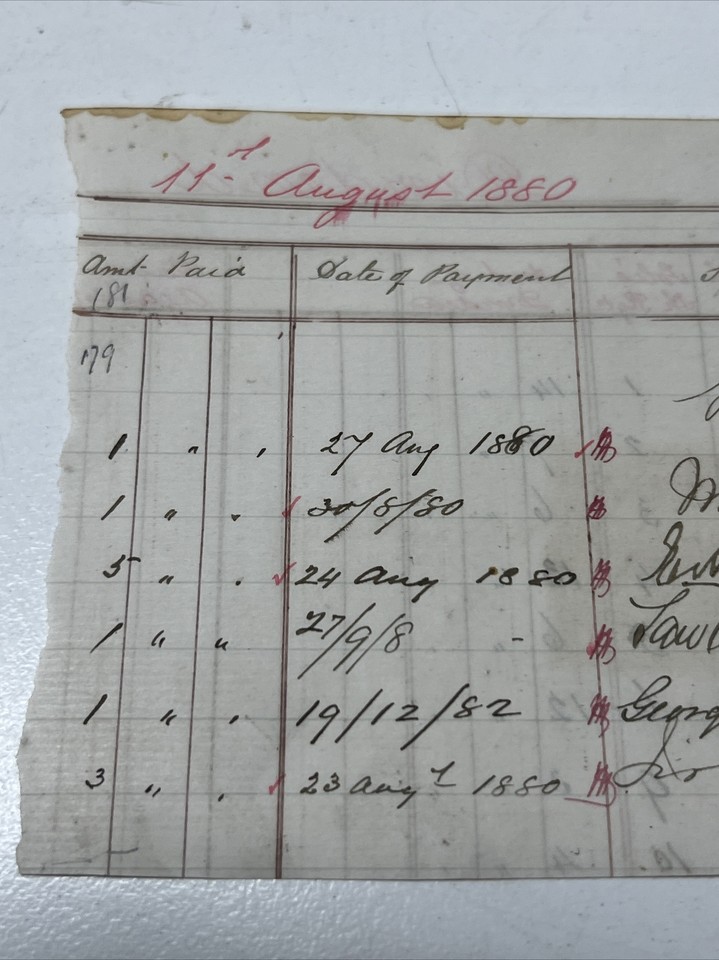 11th August 1880
Amt Paid Date of Payment
181
179
1 " " 27 Aug 1880
1 " " 30/8/80
5 " " 24 Aug 1880
1 " " 27/9/8 -
1 " " 19/12/82 Georg
3 " " 23 Augt 1880